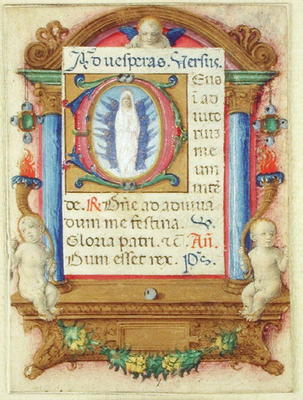 Ad uesperas. Versus.
DEus
ī ad
iuto
riuʒ
me
um
intē
de. R. Dñe ad adiuuā
dum me festina. V.
Gloria patri. &c. Añ.
Dum esset rex. Ps.